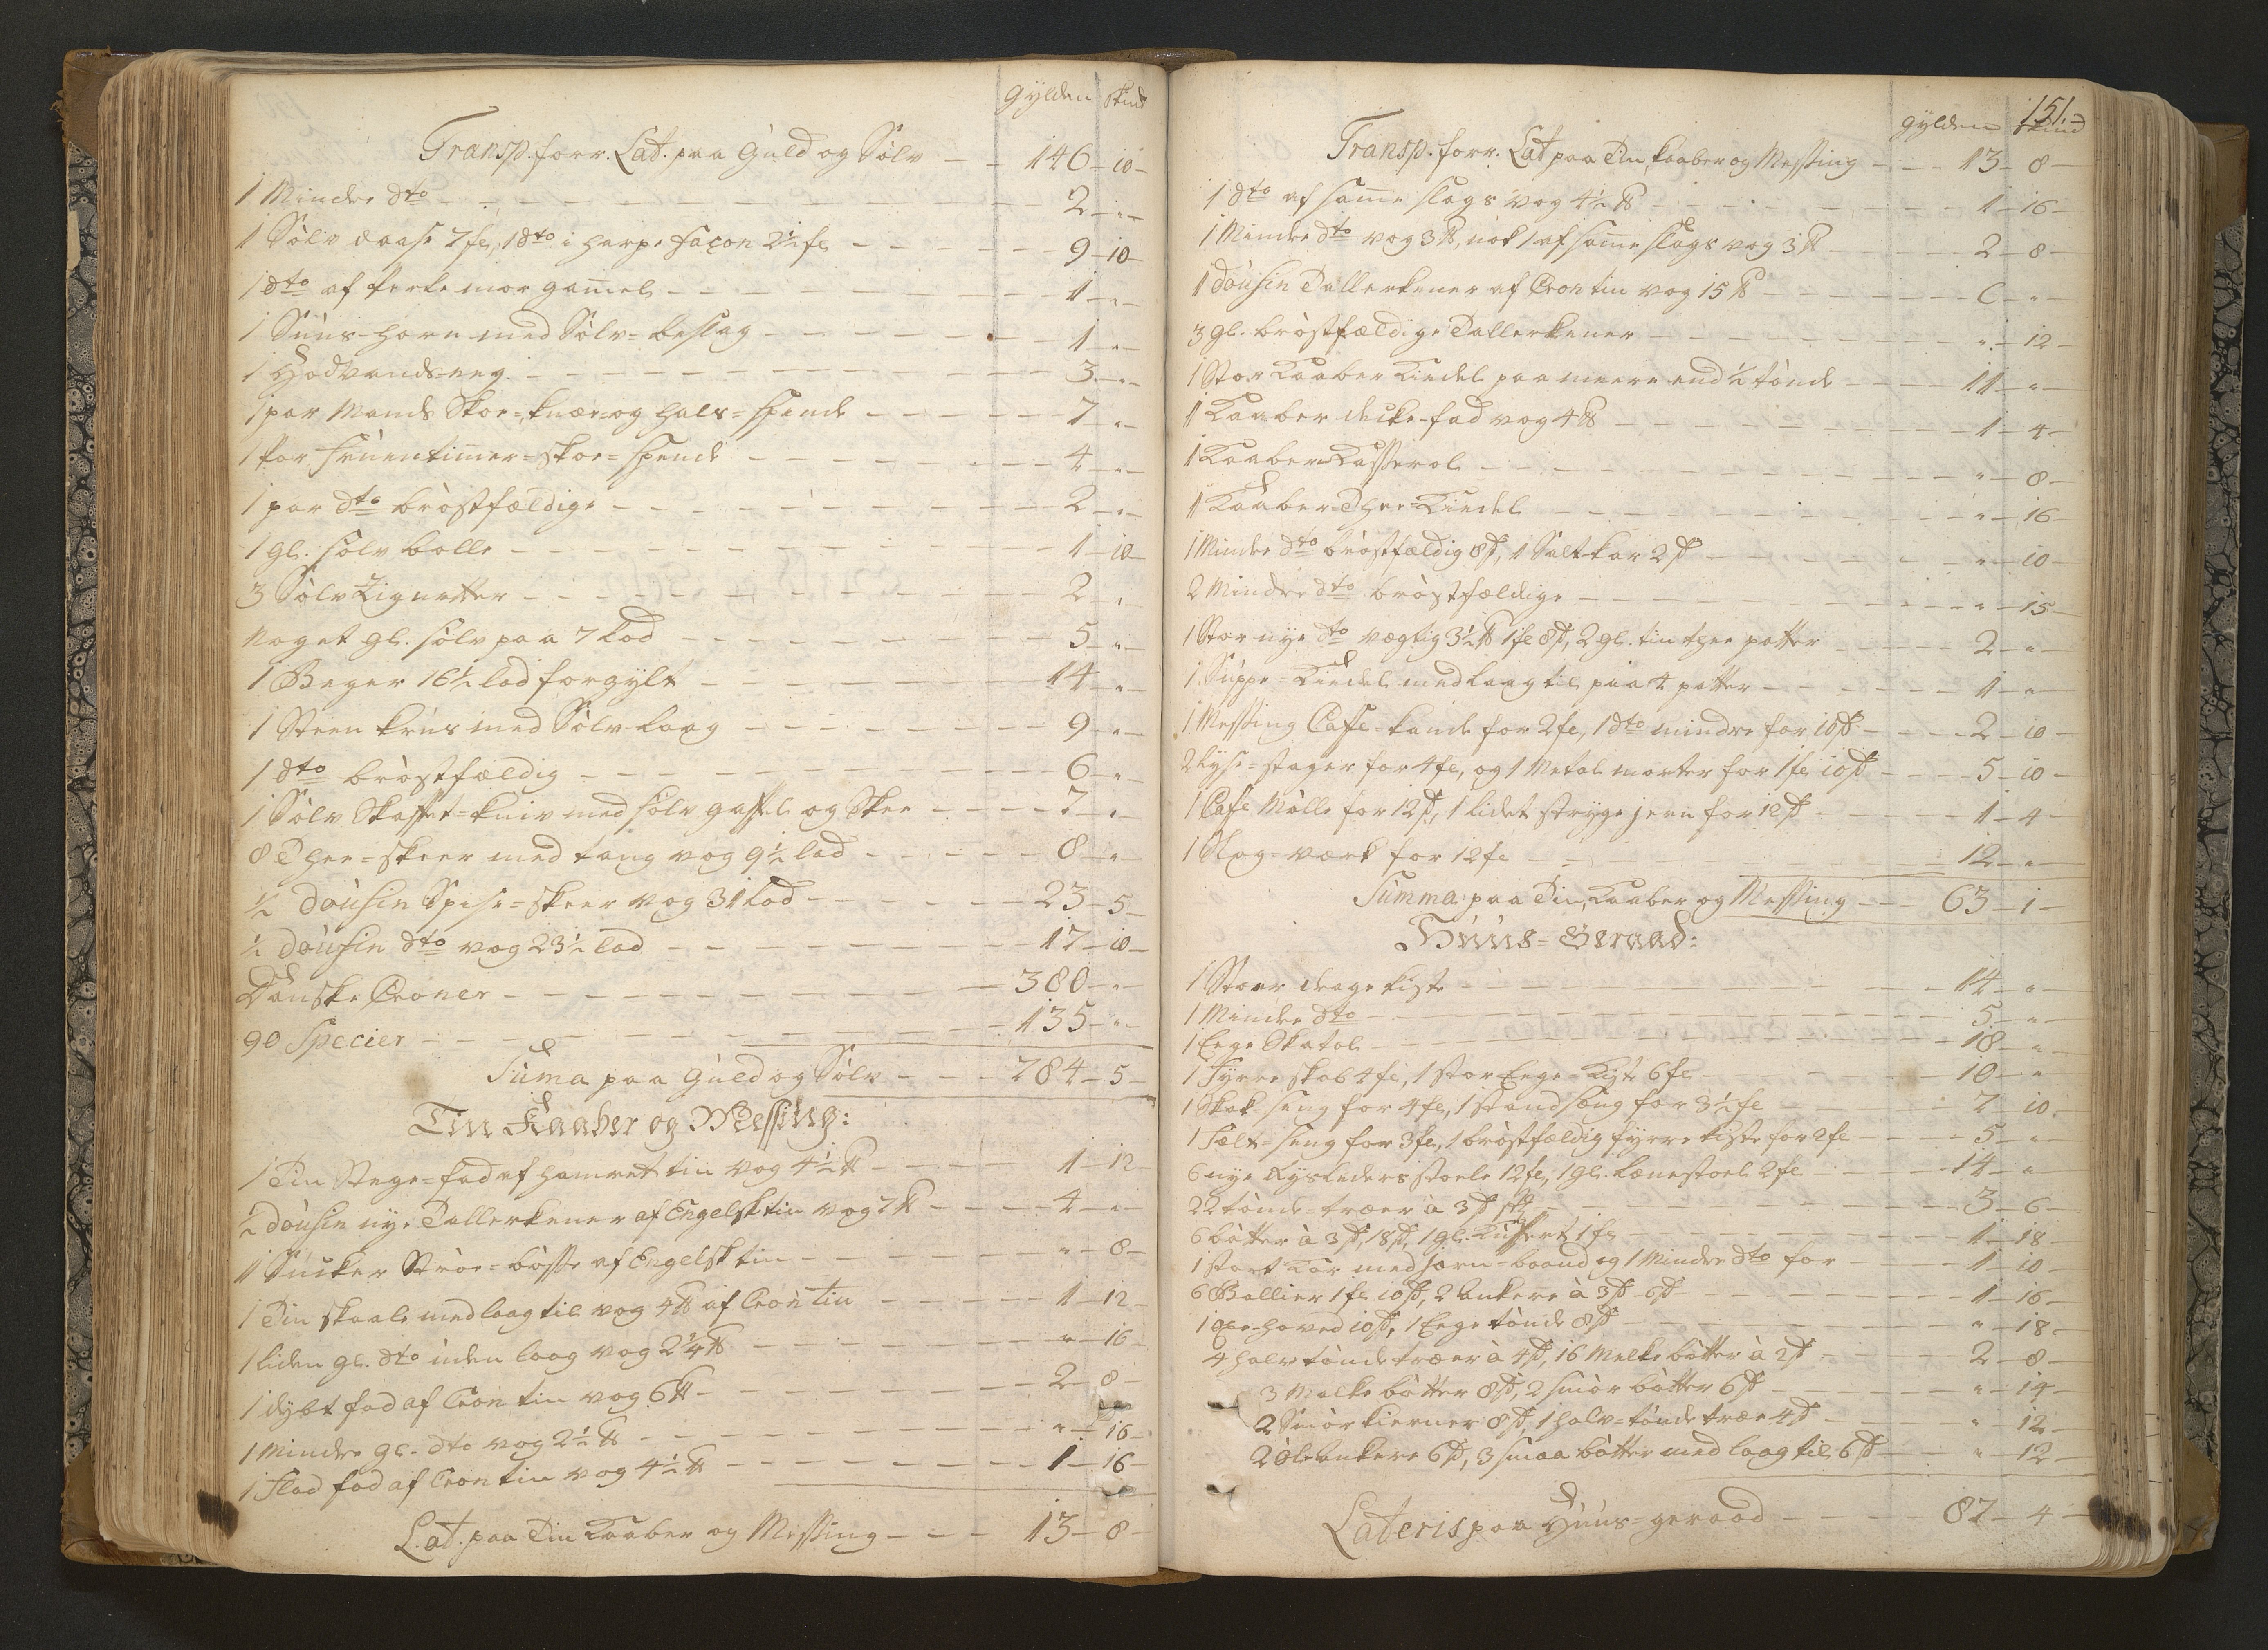 Gylden skind
Transp. forr. Lat. paa Guld og Sølv - - 146 - 10 -
1 Mindre dto - - - 2 - " -
1 Sølv daase 7 fl, 1 dto i harpe façon 2½ fl - - - 9 - 10 -
1 dto af perlemor gam̄el - - - 1 - " -
1 Snus-horn med Sølv=beslag - - - 1 - " -
1 Hodvands-eeg - - - 3 - " -
1 par Mands Skoe=, knæe= og hals=spende - - - 7 - " -
1 par Fruentim̄er=skoe=spende - - - 4 - " -
1 par dto brøstfældige - - - 2 - " -
1 gl. sølv bolle - - - 1 - 10 -
3 Sølv Zignetter - - - 2 - " -
Noget gl. sølv paa 7 Lod - - - 5 - " -
1 Beger 16½ lod forgylt - - - 14 - " -
1 Steen kruus med Sølv-laag - - - 9 - " -
1 dto brøstfældig - - - 6 - " -
1 Sølv Skaffet=kniv med sølv gaffel og Skee - - - 7 - " -
8 Thee=skeer med tang vog 9½ lod - - - 8 - " -
½ dousin Spise=skeer vog 31 Lod - - - 23 - 5 -
½ dousin dto vog 23½ lod - - - 17 - 10 -
Danske Croner - - - 380 - " -
90 Specier - - - 135 - " -
Sum̄a paa Guld og Sølv - - - 784 - 5 -
Tin Kaaber og Messing:
1 Tin Stege=fad af hamret tin vog 4½ ℔ - - - 1 - 12 -
½ dousin nye Tallerkener af Engelsk tin vog 7 ℔ - - - 4 - " -
1 Sucker Strøe=bøsse af Engelsk tin - - - " - 8 -
1 Tin skaale med laag til vog 4 ℔ af Cron tin - - - 1 - 12 -
1 liden gl. dto uden laag vog 2¼ ℔ - - - " - 16 -
1 dybt fad af Cron tin vog 6 ℔ - - - 2 - 8 -
1 Mindre gl. dto vog 2½ ℔ - - - " - 16 -
1 Flad fad af Cron tin vog 4½ ℔ - - - 1 - 16 -
Lat. paa Tin Kaaber og Messing - - - 13 - 8 -
151.
gylden skind
Transp. forr. Lat paa Tin, kaaber og Messing - - - 13 - 8 -
1 dto af sam̄e slags vog 4½ ℔ - - - 1 - 16 -
1 Mindre dto vog 3 ℔, nok 1 af sam̄e slags vog 3 ℔ - - - 2 - 8 -
1 dousin Tallerkener af Cron tin vog 15 ℔ - - - 6 - " -
3 gl. brøstfældige Tallerkener - - - " - 12 -
1 Stor Kaaber Kiedel paa meere end ½ tønde - - - 11 - " -
1 Kaaber decke-fad vog 4 ℔ - - - 1 - 4 -
1 Kaaber Kasserol - - - " - 8 -
1 Kaaber Thee=Kiedel - - - " - 16 -
1 Mindre dto brøstfældig 8 ß, 1 Salt-kar 2 ß - - - " - 10 -
2 Mindre dto brøstfældige - - - " - 15 -
1 Stor nye dto vegtig 3½ ℔ 1 fl 8 ß, 2 gl. tin thee potter - - - 2 - " -
1 Suppe=Kiedel med laag til paa 4 potter - - - 1 - " -
1 Messing Caffe=kande for 2 fl, 1 dto mindre for 10 ß - - - 2 - 10 -
2 Lyse=stager for 4 fl, og 1 Metal morter for 1 fl 10 ß - - - 5 - 10 -
1 Cafe Mølle for 12 ß, 1 lidet strygejern for 12 ß - - - 1 - 4 -
1 Slag=værk for 12 fl - - - 12 - " -
Summa paa Tin, Kaaber og Messing - - - 63 - 1 -
Huus=Geraad:
1 Stoer drage kiste - - - 14 - " -
1 Mindre dto - - - 5 - " -
1 Eege Skatol - - - 18 - "
1 Fyrre skab 4 fl, 1 stor Eege=Kiste 6 fl - - - 10 - "
1 Skab seng for 4 fl, 1 stand seng for 3½ fl - - - 7 - 10 -
1 Felt=seng for 3 fl, 1 brøstfældig fyrre kiste for 2 fl - - - 5 - " -
6 nye Ryslæders stoele 12 fl, 1 gl. lænestoel 2 fl - - - 14 - " -
22 tønde=træer à 3 ß stk - - - 3 - 6 -
6 bøtter à 3 ß, 18 ß, 1 gl. Kuffert 1 fl - - - 1 - 18 -
1 stort Kar med jærn=baand og 1 Mindre dto for - - - 1 - 10 -
6 Ballier 1 fl 10 ß, 2 ankere à 3 ß - 6 ß - - - 1 - 16 -
1 Oxe-hoved 10 ß, 1 Eege tønde 8 ß - - - " - 18 -
4 halv tønde træer à 4 ß, 16 Melke bøtter à 2 ß - - - 2 - 8 -
3 Melke bøtter 8 ß, 2 smør bøtter 6 ß - - - " - 14 -
2 Smør kierner 8 ß, 1 halv=tønde træe 4 ß - - - " - 12 -
2 Øleankere 6 ß, 3 smaa bøtter med laag til 6 ß - - - " - 12 -
Lateris paa Huus=geraad - - - 87 - 4 -